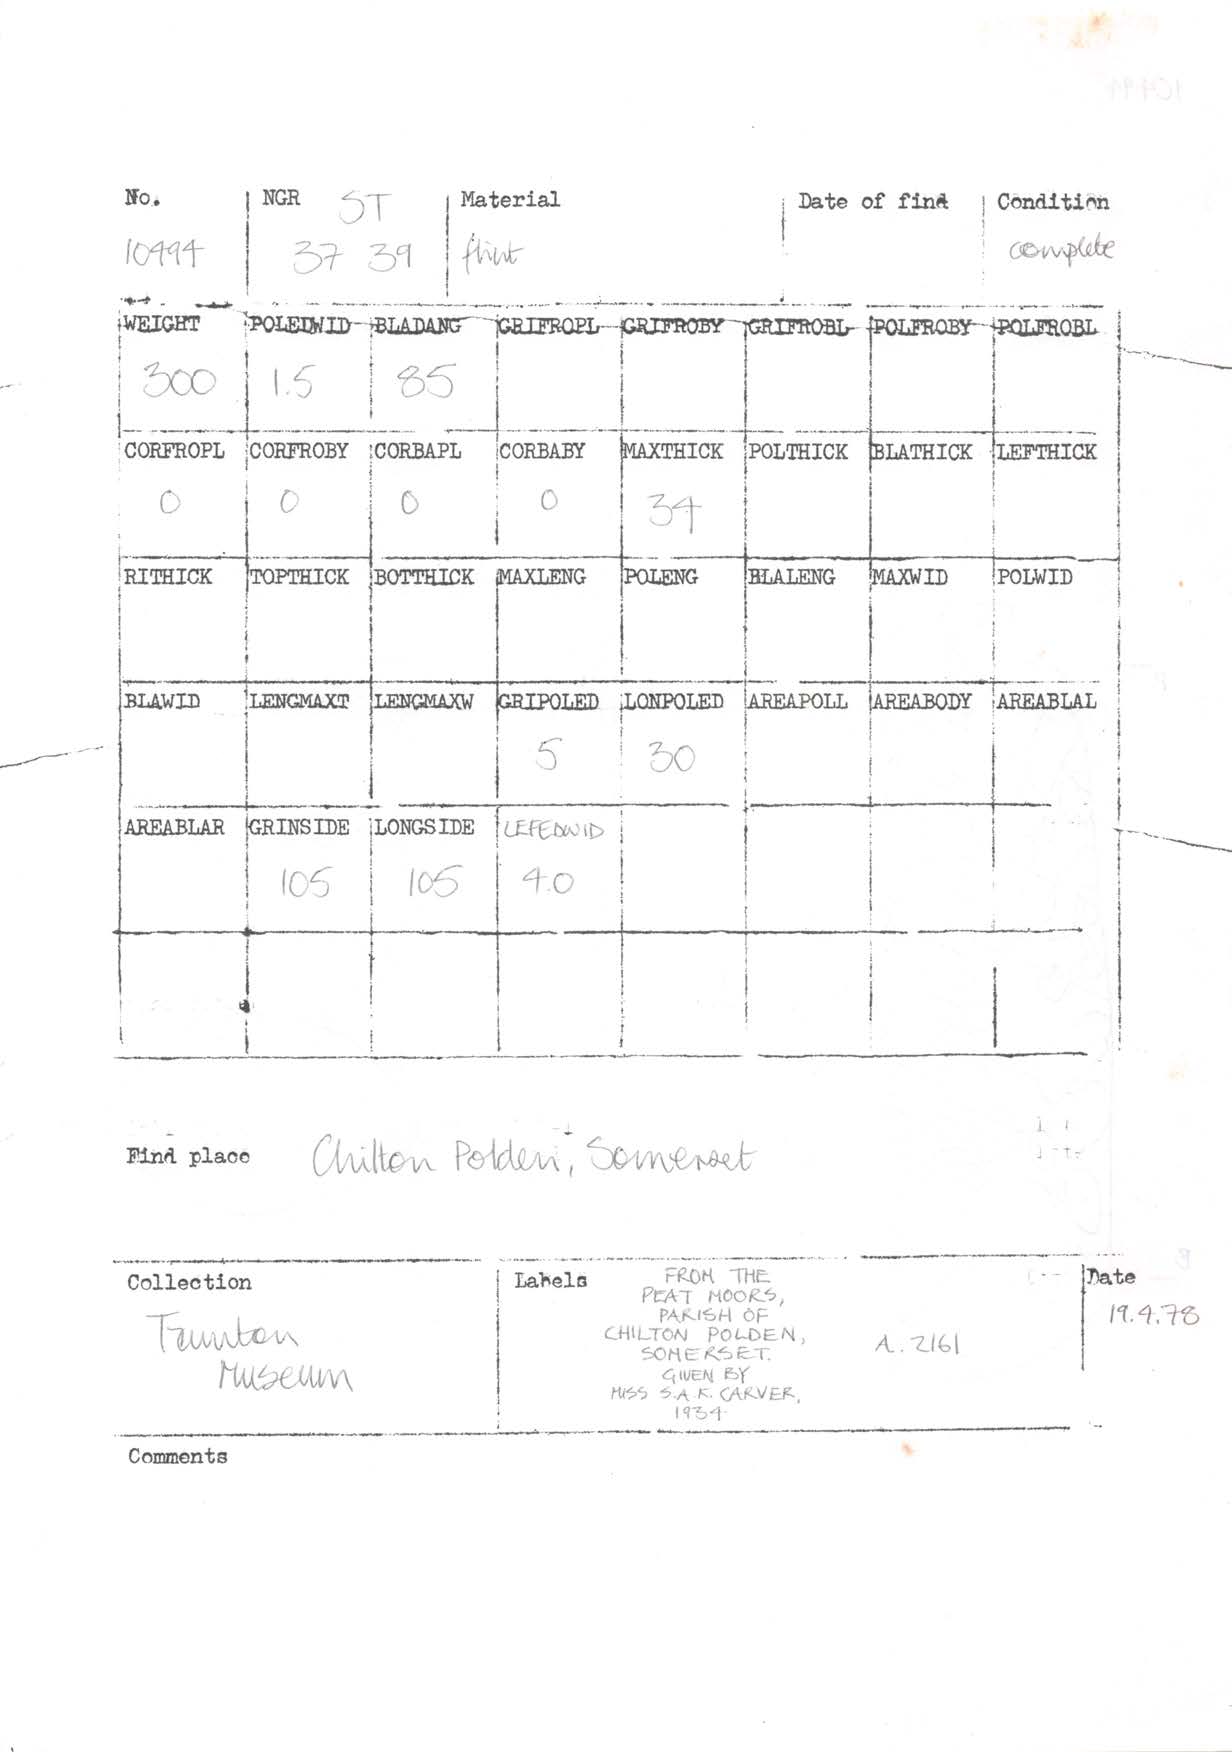 No. NGR ST Material Date of find Condition
10494 37 39 flint complete
WEIGHT POLEDWID BLADANG GRIFROPL GRIFROBY GRIFROBL POLFROBY POLFROBL
300 1.5 85
CORFROPL CORFROBY CORBAPL CORBABY MAXTHICK POLTHICK BLATHICK LEFTHICK
0 0 0 0 34
RITHICK TOPTHICK BOTTHICK MAXLENG POLENG BLALENG MAXWID POLWID
BLAWID LENGMAXT LENGMAXW GRIPOLED LONPOLED AREAPOLL AREABODY AREABLAL
5 30
AREABLAR GRINSIDE LONGSIDE LEFEDWID
105 105 4.0
Find place Chilton Polden, Somerset
Collection
Taunton
Museum
Labels
FROM THE
PEAT MOORS,
PARISH OF
CHILTON POLDEN,
SOMERSET.
GIVEN BY
MISS S.A.K. CARVER,
1934
A. 2161
Date
19.4.78
Comments